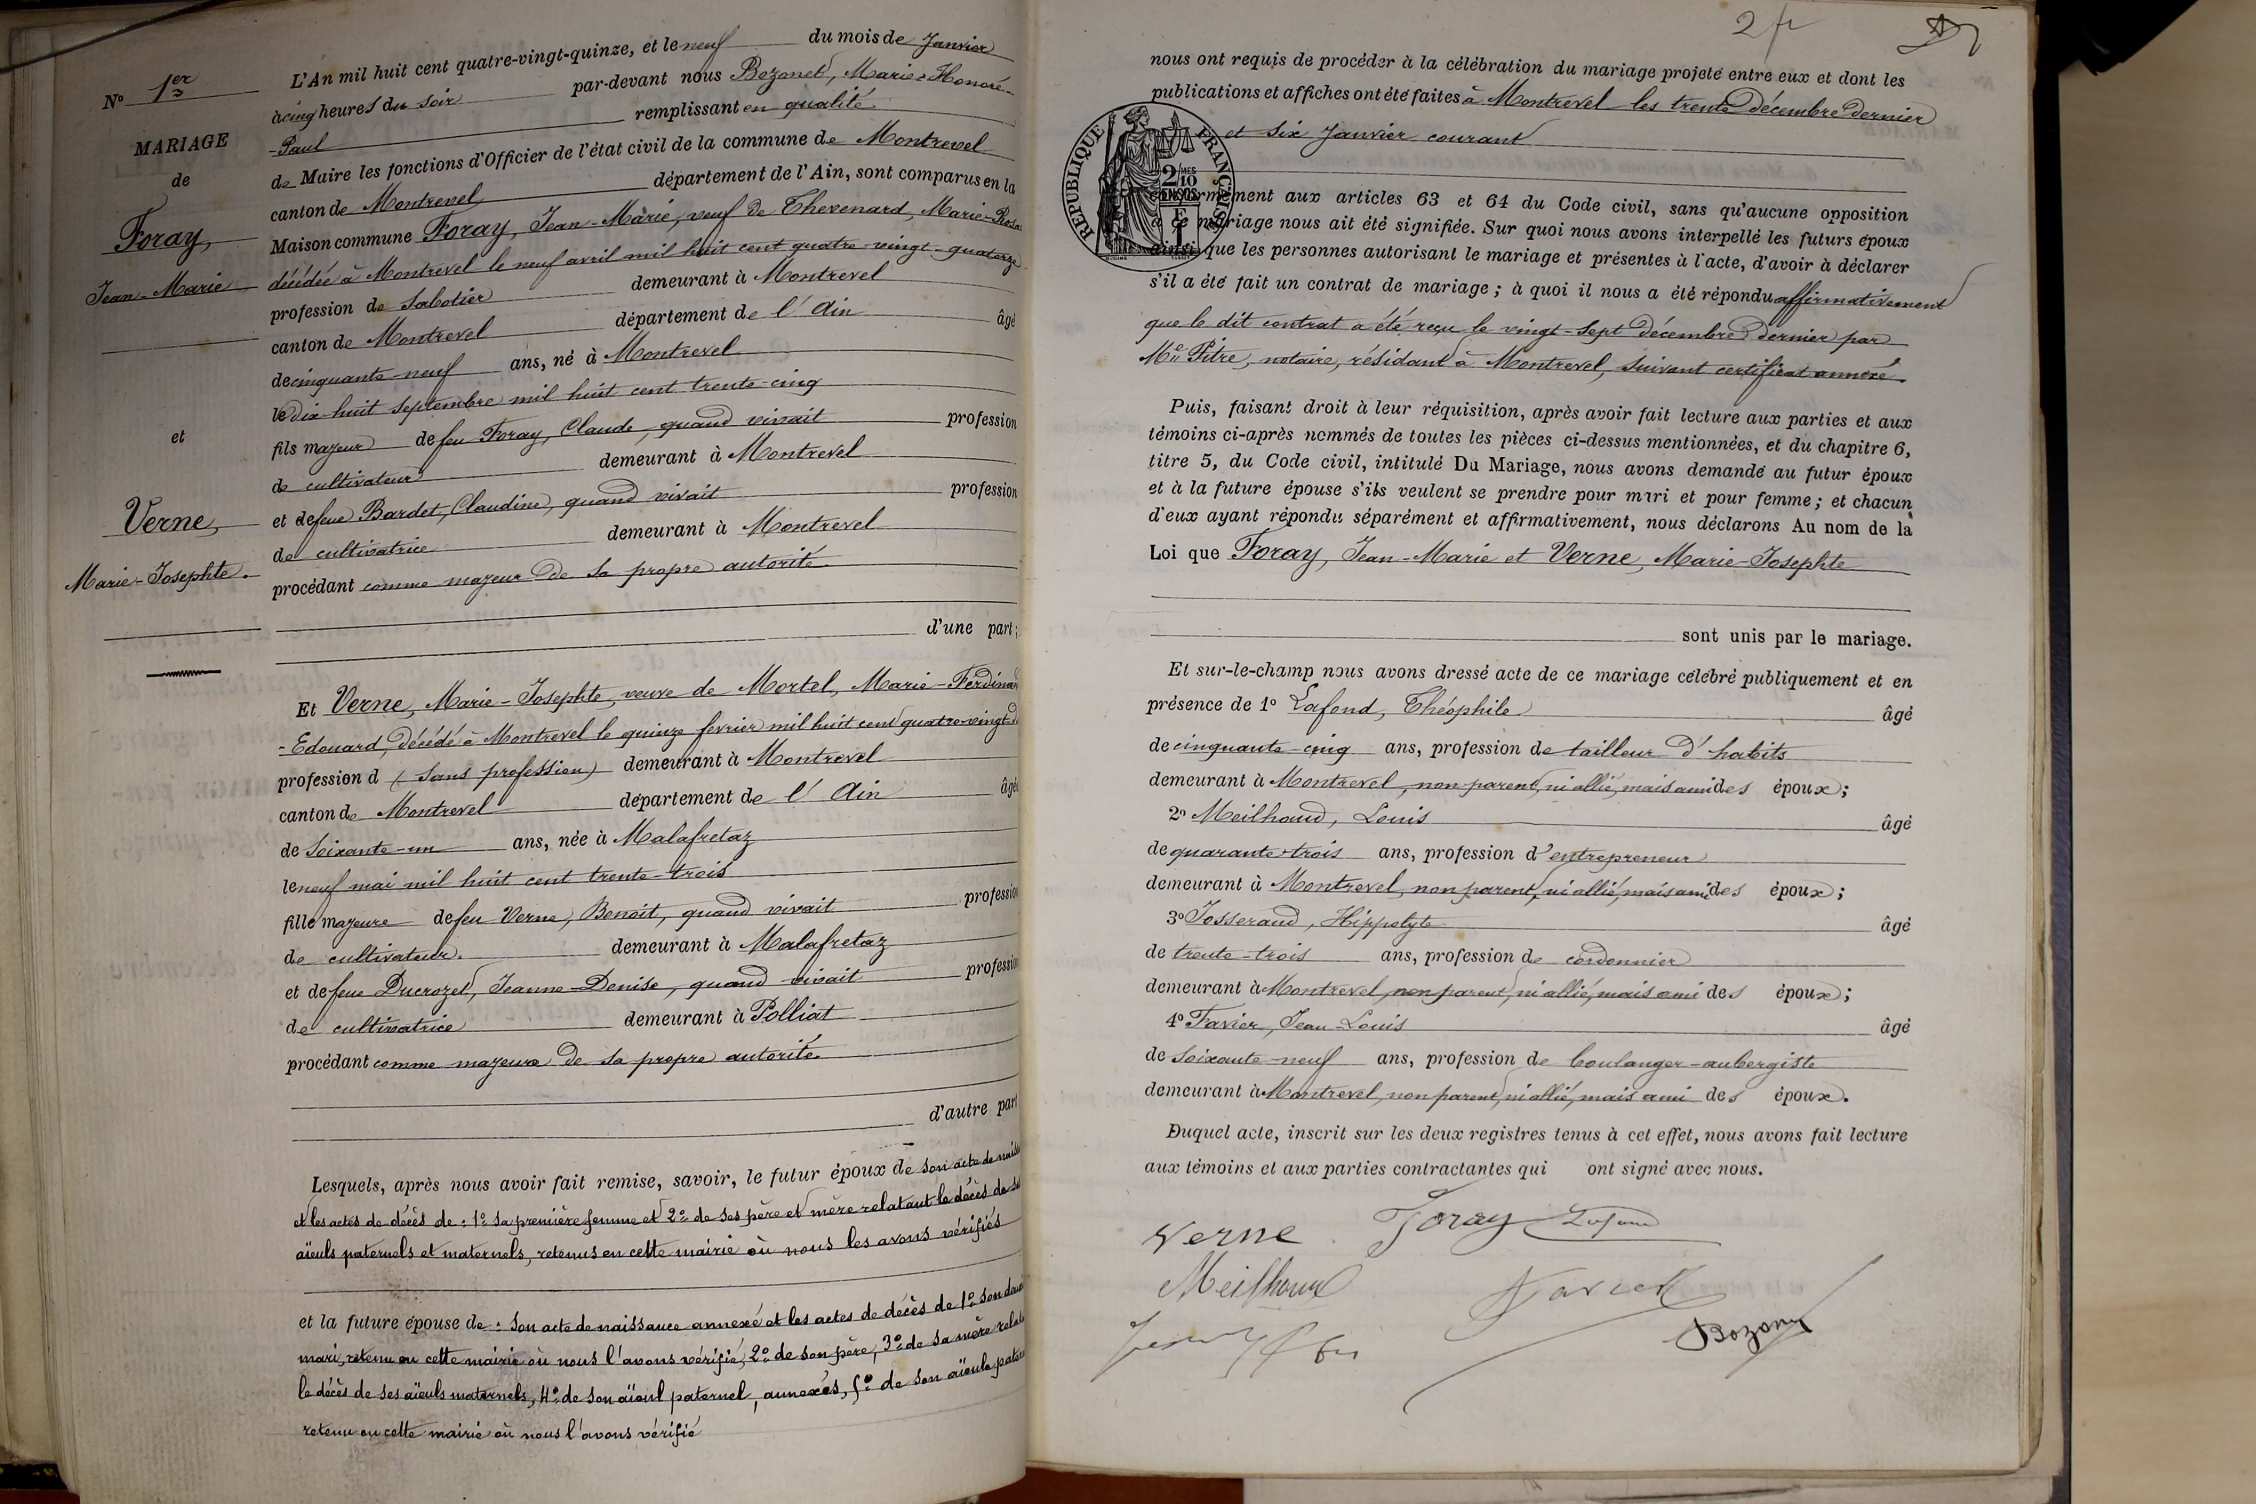 N° 1er
MARIAGE
de
Foray,
Jean-Marie
et
Verne,
Marie-Josephte.
L'An mil huit cent quatre-vingt-quinze, et le neuf du mois de Janvier
à cinq heures du soir par-devant nous Bozonet, Marie-Honoré-
-Paul remplissant en qualité
de Maire les fonctions d'Officier de l'état civil de la commune de Montrevel
canton de Montrevel département de l'Ain, sont comparus en la
Maison commune Foray, Jean-Marie, veuf de Thevenard, Marie-Rosa
décédée à Montrevel le neuf avril mil huit cent quatre-vingt-quatorze
profession de Sabotier demeurant à Montrevel
canton de Montrevel département de l'Ain âgé
de cinquante-neuf ans, né à Montrevel
le dix-huit septembre mil huit cent trente-cinq
fils majeur de feu Foray, Claude, quand vivait profession
de cultivateur demeurant à Montrevel
et de feue Bardet, Claudine, quand vivait profession
de cultivatrice demeurant à Montrevel
procédant comme majeur de sa propre autorité
d'une part;
Et Verne, Marie-Josephte, veuve de Mortel, Marie-Ferdinand
-Edouard, décédé à Montrevel le quinze fevrier mil huit cent quatre-vingt
profession d (sans profession) demeurant à Montrevel
canton de Montrevel département de l'Ain âgée
de Soixante-un ans, née à Malafretaz
le neuf mai mil huit cent trente-trois
fille majeure de feu Verne, Benoit, quand vivait profession
de cultivateur. demeurant à Malafretaz
et de feue Ducrozet, Jeanne-Denise, quand vivait profession
de cultivatrice demeurant à Polliat
procédant comme majeure de sa propre autorité.
d'autre part
Lesquels, après nous avoir fait remise, savoir, le futur époux de son acte de naiss
et les actes de décès de : 1° sa première femme et 2° de ses père et mère relatant le décès de ses
aïeuls paternels et maternels, retenus en cette mairie où nous les avons vérifiés
et la future épouse de : son acte de naissance annexé et les actes de décès de 1° son
mari, retenu en cette mairie où nous l'avons vérifié, 2° de son père, 3° de sa mère relat
le décès de ses aïeuls maternels, 4° de son aïeul paternel, annexés, 5° de son aïeule patern
retenu en cette mairie où nous l'avons vérifié
2 fr
nous ont requis de procéder à la célébration du mariage projeté entre eux et dont les
publications et affiches ont été faites à Montrevel les trente Décembre Dernier
et six Janvier courant
REPUBLIQUE FRANÇAISE
2/10
EN SUS
conformément aux articles 63 et 64 du Code civil, sans qu'aucune opposition
à ce mariage nous ait été signifiée. Sur quoi nous avons interpellé les futurs époux
ainsi que les personnes autorisant le mariage et présentes à l'acte, d'avoir à déclarer
s'il a été fait un contrat de mariage ; à quoi il nous a été répondu affirmativement
que le dit contrat a été reçu le vingt-sept Décembre dernier par
Me Pitre, notaire, résidant à Montrevel, suivant certificat annexé.
Puis, faisant droit à leur réquisition, après avoir fait lecture aux parties et aux
témoins ci-après nommés de toutes les pièces ci-dessus mentionnées, et du chapitre 6,
titre 5, du Code civil, intitulé Du Mariage, nous avons demandé au futur époux
et à la future épouse s'ils veulent se prendre pour mari et pour femme ; et chacun
d'eux ayant répondu séparément et affirmativement, nous déclarons Au nom de la
Loi que Foray, Jean-Marie et Verne, Marie-Josephte
sont unis par le mariage.
Et sur-le-champ nous avons dressé acte de ce mariage célébré publiquement et en
présence de 1° Lafond, Théophile âgé
de cinquante-cinq ans, profession de tailleur d'habits
demeurant à Montrevel, non parent, ni allié, mais ami des époux ;
2° Meilhaud, Louis âgé
de quarante-trois ans, profession d'entrepreneur
demeurant à Montrevel, non parent, ni allié, mais ami des époux ;
3° Josserand, Hippolyte âgé
de trente-trois ans, profession de cordonnier
demeurant à Montrevel, non parent, ni allié, mais ami des époux ;
4° Favier, Jean-Louis âgé
de Soixante-neuf ans, profession de boulanger-aubergiste
demeurant à Montrevel, non parent, ni allié, mais ami des époux.
Duquel acte, inscrit sur les deux registres tenus à cet effet, nous avons fait lecture
aux témoins et aux parties contractantes qui ont signé avec nous.
Verne Foray Lafond
Meilhaud Favier
Bozonet